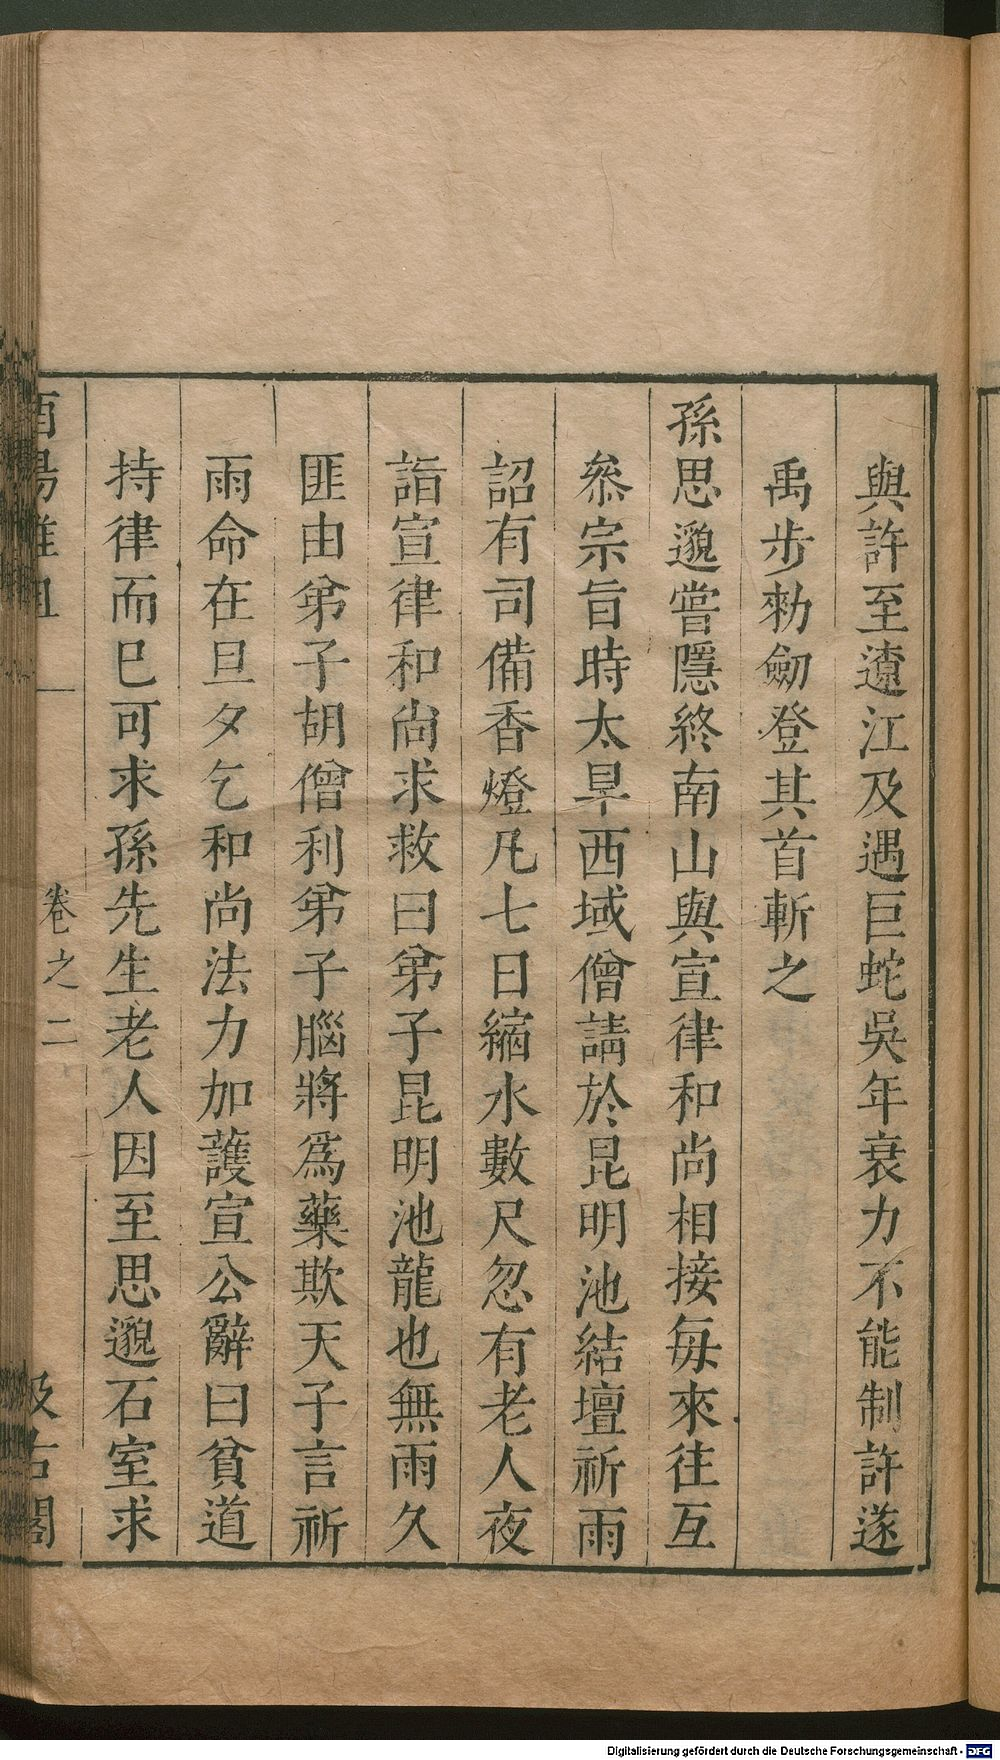 與許至遼江及遇巨蛇吳年衰力不能制許遂
禹步勑劒登其首斬之
孫思邈嘗隱終南山與宣律和尚相接毎來往互
叅宗旨時大旱西域僧請於昆明池結壇祈雨
詔有司備香燈凡七日縮水數尺忽有老人夜
詣宣律和尚求救曰弟子昆明池龍也無雨久
匪由弟子胡僧利弟子腦將爲藥欺天子言祈
雨命在旦夕乞和尚法力加護宣公辭曰貧道
持律而巳可求孫先生老人因至思邈石室求
酉陽雜俎 卷之二 汲古閣
Digitalisierung gefördert durch die Deutsche Forschungsgemeinschaft - DFG